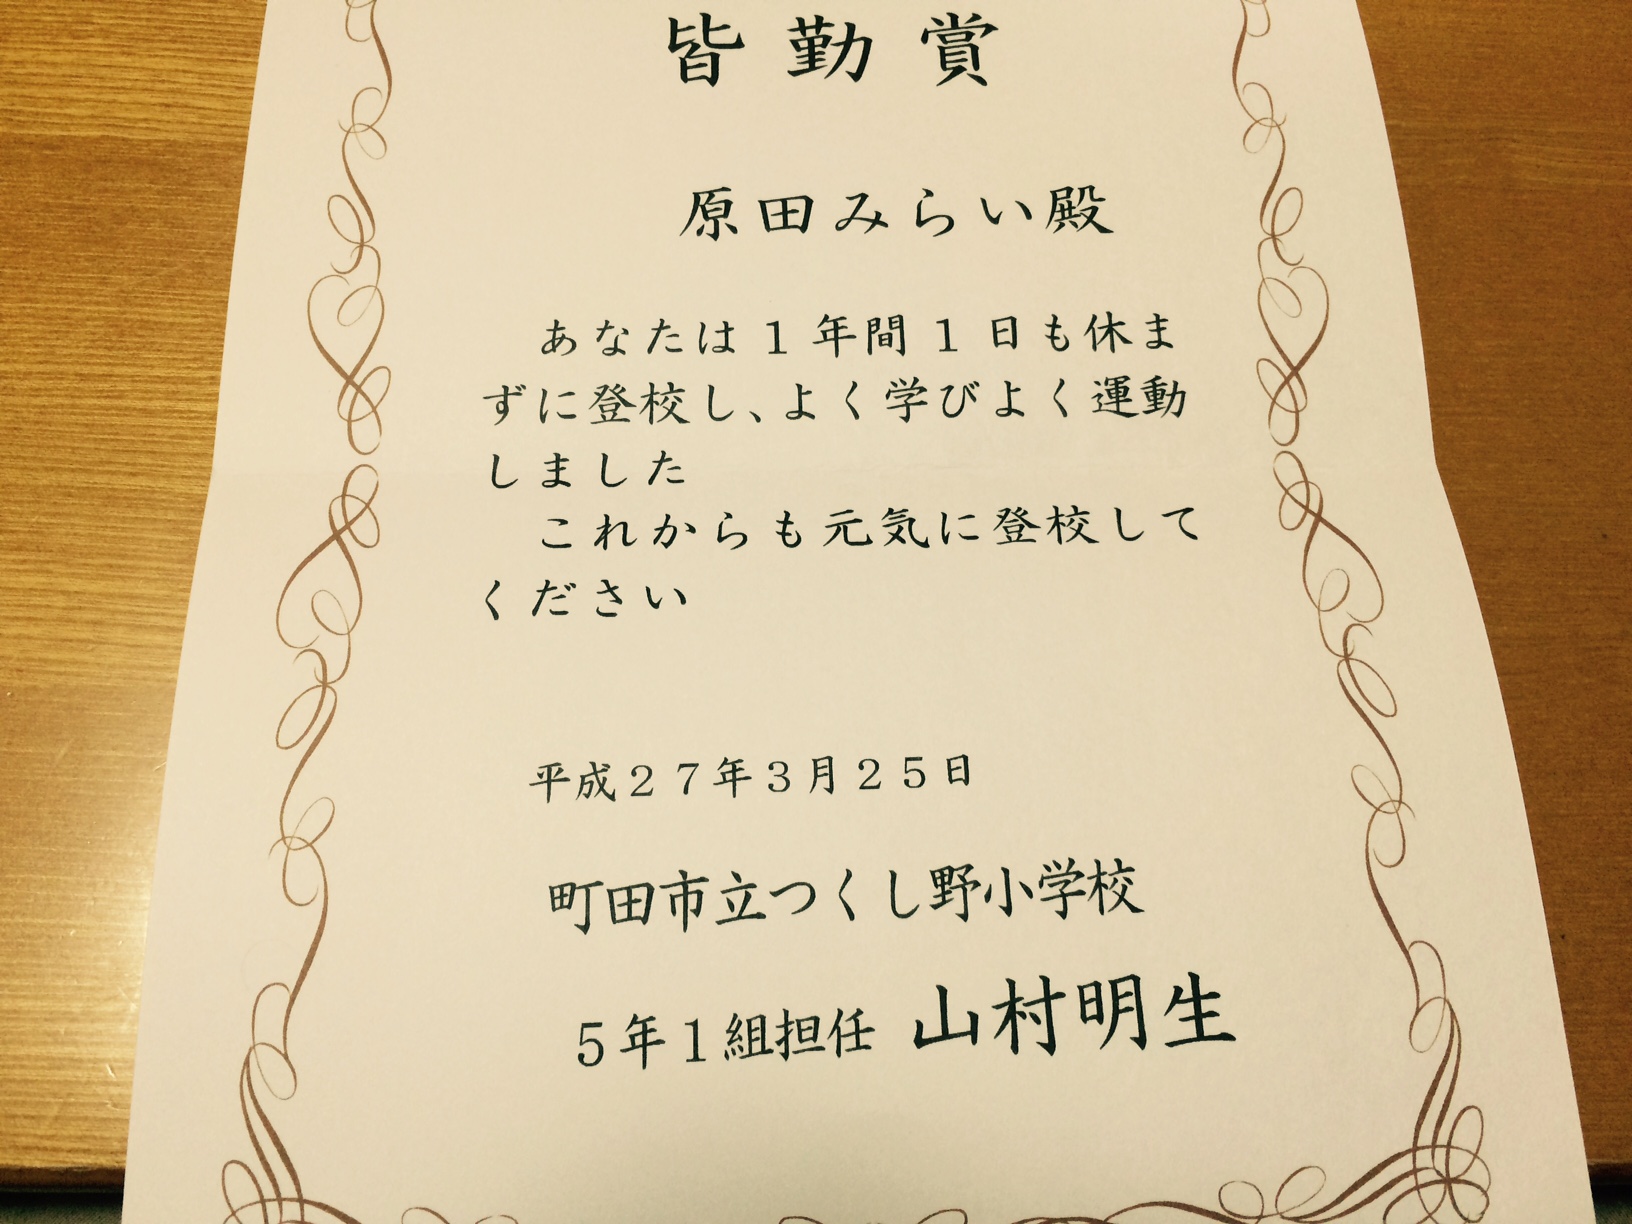 皆勤賞
原田みらい殿
あなたは１年間１日も休ま
ずに登校し、よく学びよく運動
しました
これからも元気に登校して
ください
平成２７年３月２５日
町田市立つくし野小学校
５年１組担任 山村明生